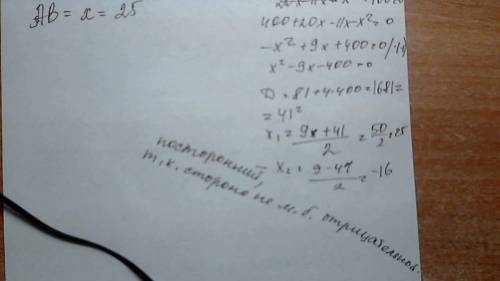 AB = x = 25
400+20x-11x-x²=0
-x²+9x+400=0/·(-1)
x²-9x-400=0
D = 81+4·400=1681=
= 41²
x₁ = (9x+41)/2 = 50/2 = 25
x₂ = (9-41)/2 = -16
посторонний,
т.к. сторона не м.б. отрицательной.